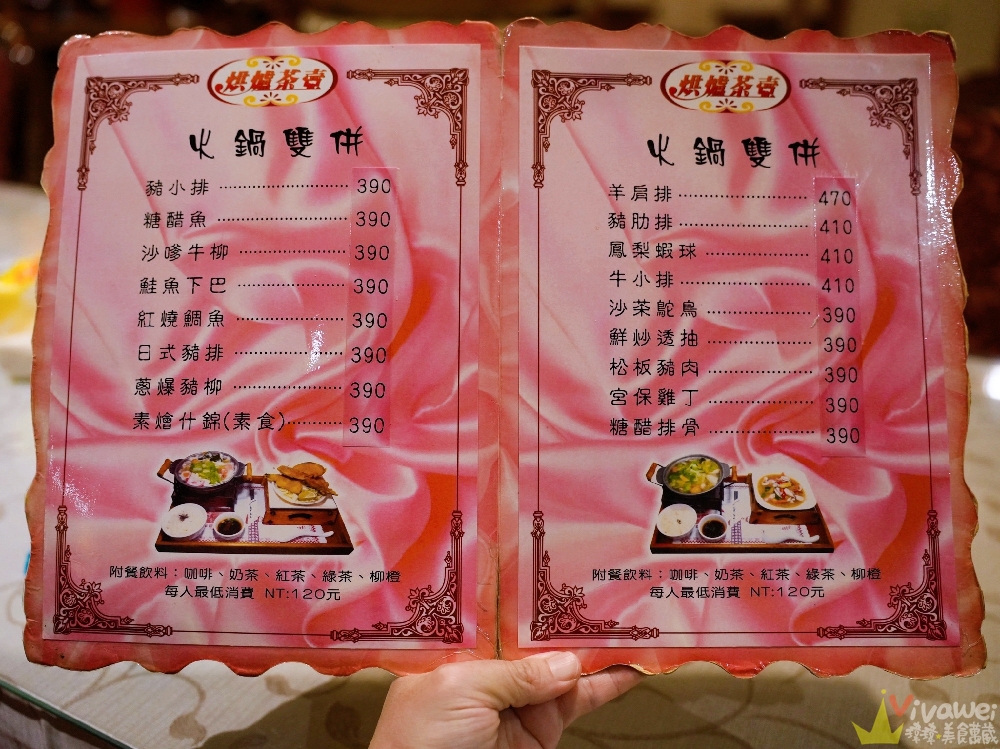 烘爐茶壺
火鍋雙併
豬小排 390
糖醋魚 390
沙嗲牛柳 390
鮭魚下巴 390
紅燒鯛魚 390
日式豬排 390
蔥爆豬柳 390
素燴什錦(素食) 390
附餐飲料：咖啡、奶茶、紅茶、綠茶、柳橙
每人最低消費 NT:120元
烘爐茶壺
火鍋雙併
羊肩排 470
豬肋排 410
鳳梨蝦球 410
牛小排 410
沙茶鴕鳥 390
鮮炒透抽 390
松板豬肉 390
宮保雞丁 390
糖醋排骨 390
附餐飲料：咖啡、奶茶、紅茶、綠茶、柳橙
每人最低消費 NT:120元
Vivawei